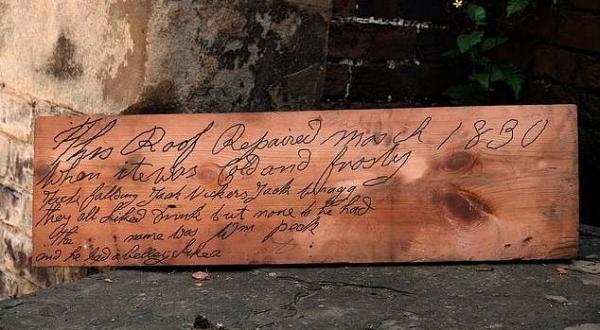 This Roof Repaired march 1830
When it was Cold and frosty
Jack Vickers Jack
They all Liked drink but none to be had
the name was Wm peak
and he had a belley Like a